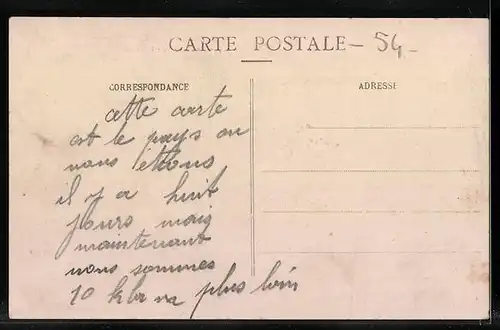 CARTE POSTALE — 54 —
CORRESPONDANCE
ADRESSE
cette carte
est le pays ou
nous étions
il y a huit
jours mais
maintenant
nous sommes
10 plus loin